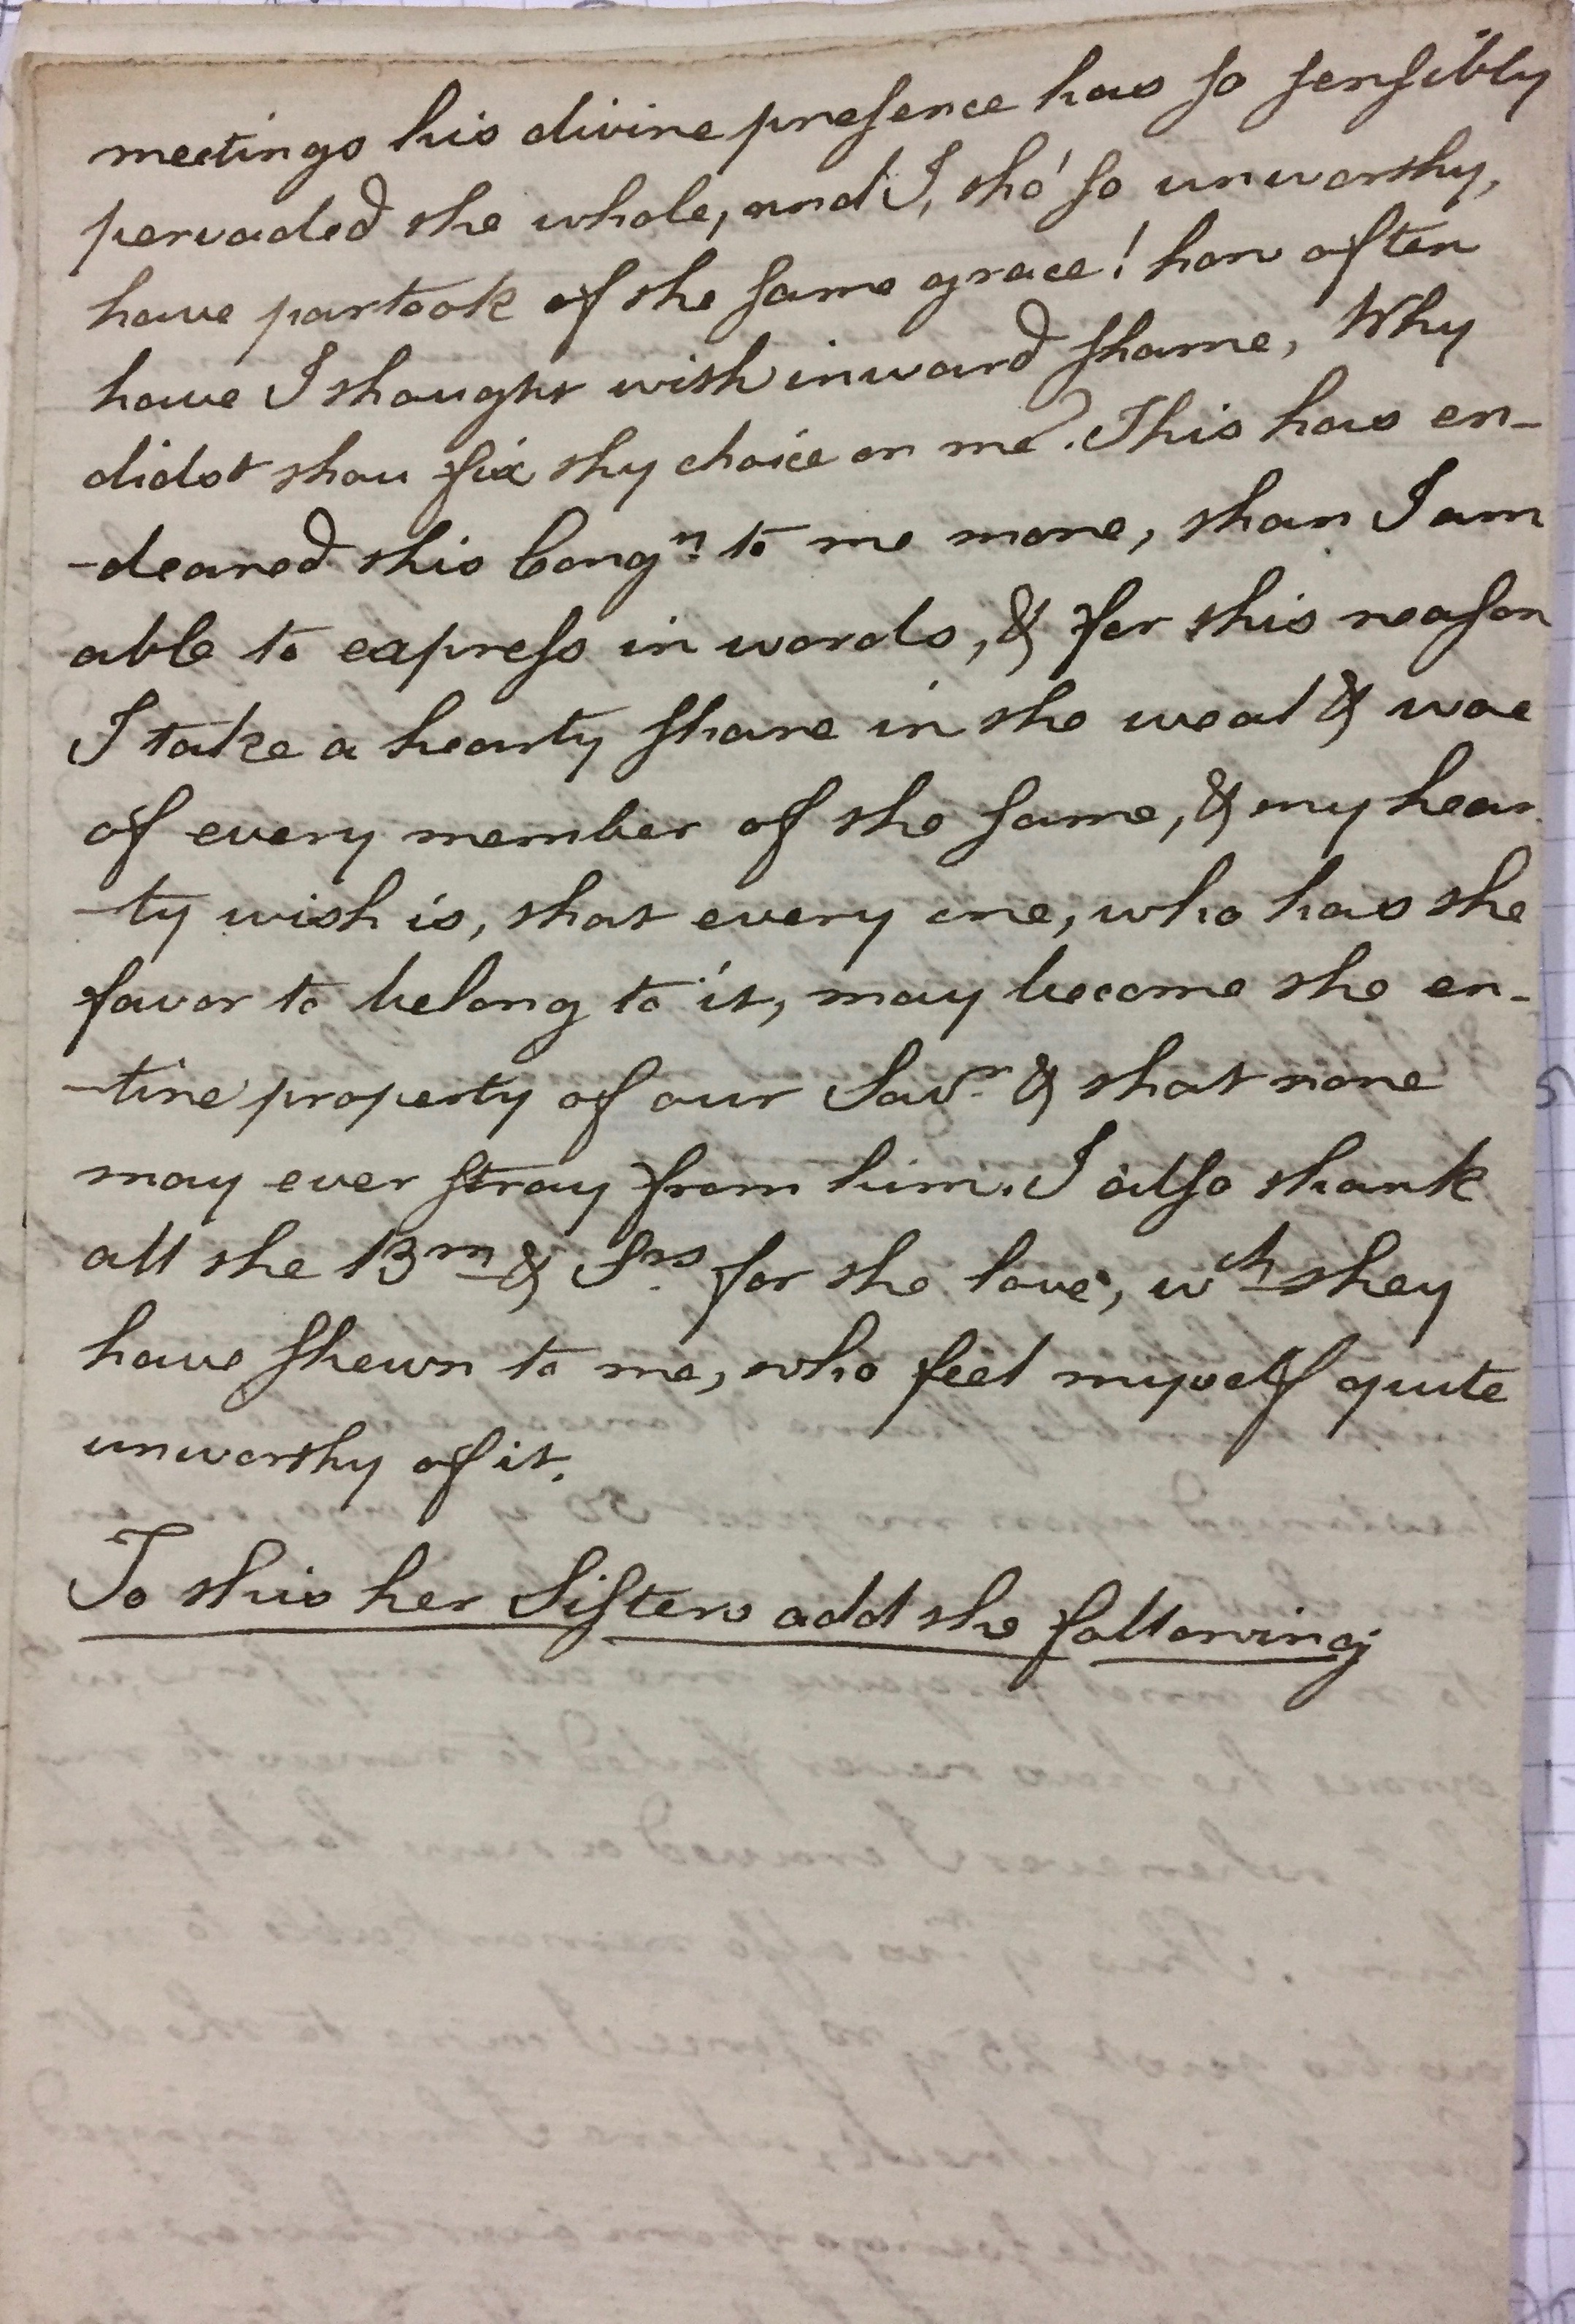 meetings his divine presence has so sensibly
pervaded the whole, and I, tho' so unworthy,
have partook of the same grace! how often
have I thought with inward shame, Why
didst thou fix thy choice on me? This has en-
-deared this Congn. to me more, than I am
able to express in words, & for this reason
I take a hearty share in the weal & woe
of every member of the same, & my hear
-ty wish is, that every one, who has the
favor to belong to it, may become the en-
-tire property of our Savr. & that none
may ever stray from him. I also thank
all the Brn & Srs. for the love, wch they
have shewn to me, who feel myself quite
unworthy of it.
To this her Sisters add the following